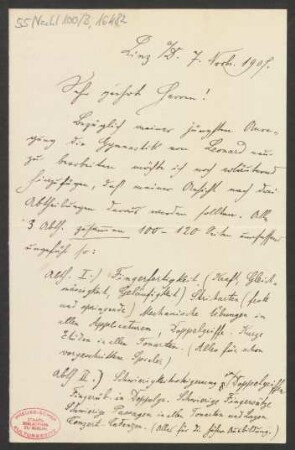 55 Nachl 100/B, 1642
Linz a/D. 7. Novb. 1905.
Sehr geehrte Herren!
Bezüglich meiner jüngsten Anre-
gung die Gymnastik von Leonard neu
zu bearbeiten möchte ich noch erläuternd
hinzufügen, daß meiner Ansicht nach drei
Abtheilungen daraus werden sollten. Alle
3 Abth. zusammen 100–120 Seiten umfassen
ungefähr so:
Abth. I.) Fingerfertigkeit (Kraft, Gleich-
mässigkeit, Geläufigkeit) Stricharten (fest
und springende) Mechanische Übungen in
allen Applicaturen, Doppelgriffe. Kurze
Etüden in allen Tonarten. (Alles für schon
vorgeschrittene Spieler.)
Abth. II.) Doppelgriffe
Fingerüb. in Doppelgr. Schwierige Fingersätze
Schwierige Passagen in allen Tonarten und Lagen
Concert Cadenzen. (Alles für die höhere Ausbildung.)